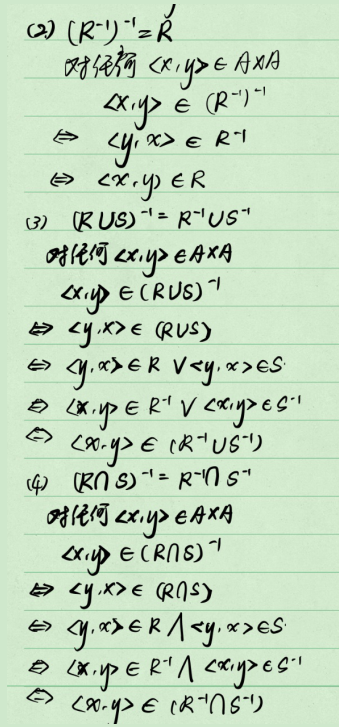 (2) (R⁻¹)⁻¹ = R
对任何 <x,y> ∈ A×A
<x,y> ∈ (R⁻¹)⁻¹
⇔ <y,x> ∈ R⁻¹
⇔ <x,y> ∈ R
(3) (R∪S)⁻¹ = R⁻¹∪S⁻¹
对任何 <x,y> ∈ A×A
<x,y> ∈ (R∪S)⁻¹
⇔ <y,x> ∈ (R∪S)
⇔ <y,x> ∈ R ∨ <y,x> ∈ S
⇔ <x,y> ∈ R⁻¹ ∨ <x,y> ∈ S⁻¹
⇔ <x,y> ∈ (R⁻¹∪S⁻¹)
(4) (R∩S)⁻¹ = R⁻¹∩S⁻¹
对任何 <x,y> ∈ A×A
<x,y> ∈ (R∩S)⁻¹
⇔ <y,x> ∈ (R∩S)
⇔ <y,x> ∈ R ∧ <y,x> ∈ S
⇔ <x,y> ∈ R⁻¹ ∧ <x,y> ∈ S⁻¹
⇔ <x,y> ∈ (R⁻¹∩S⁻¹)